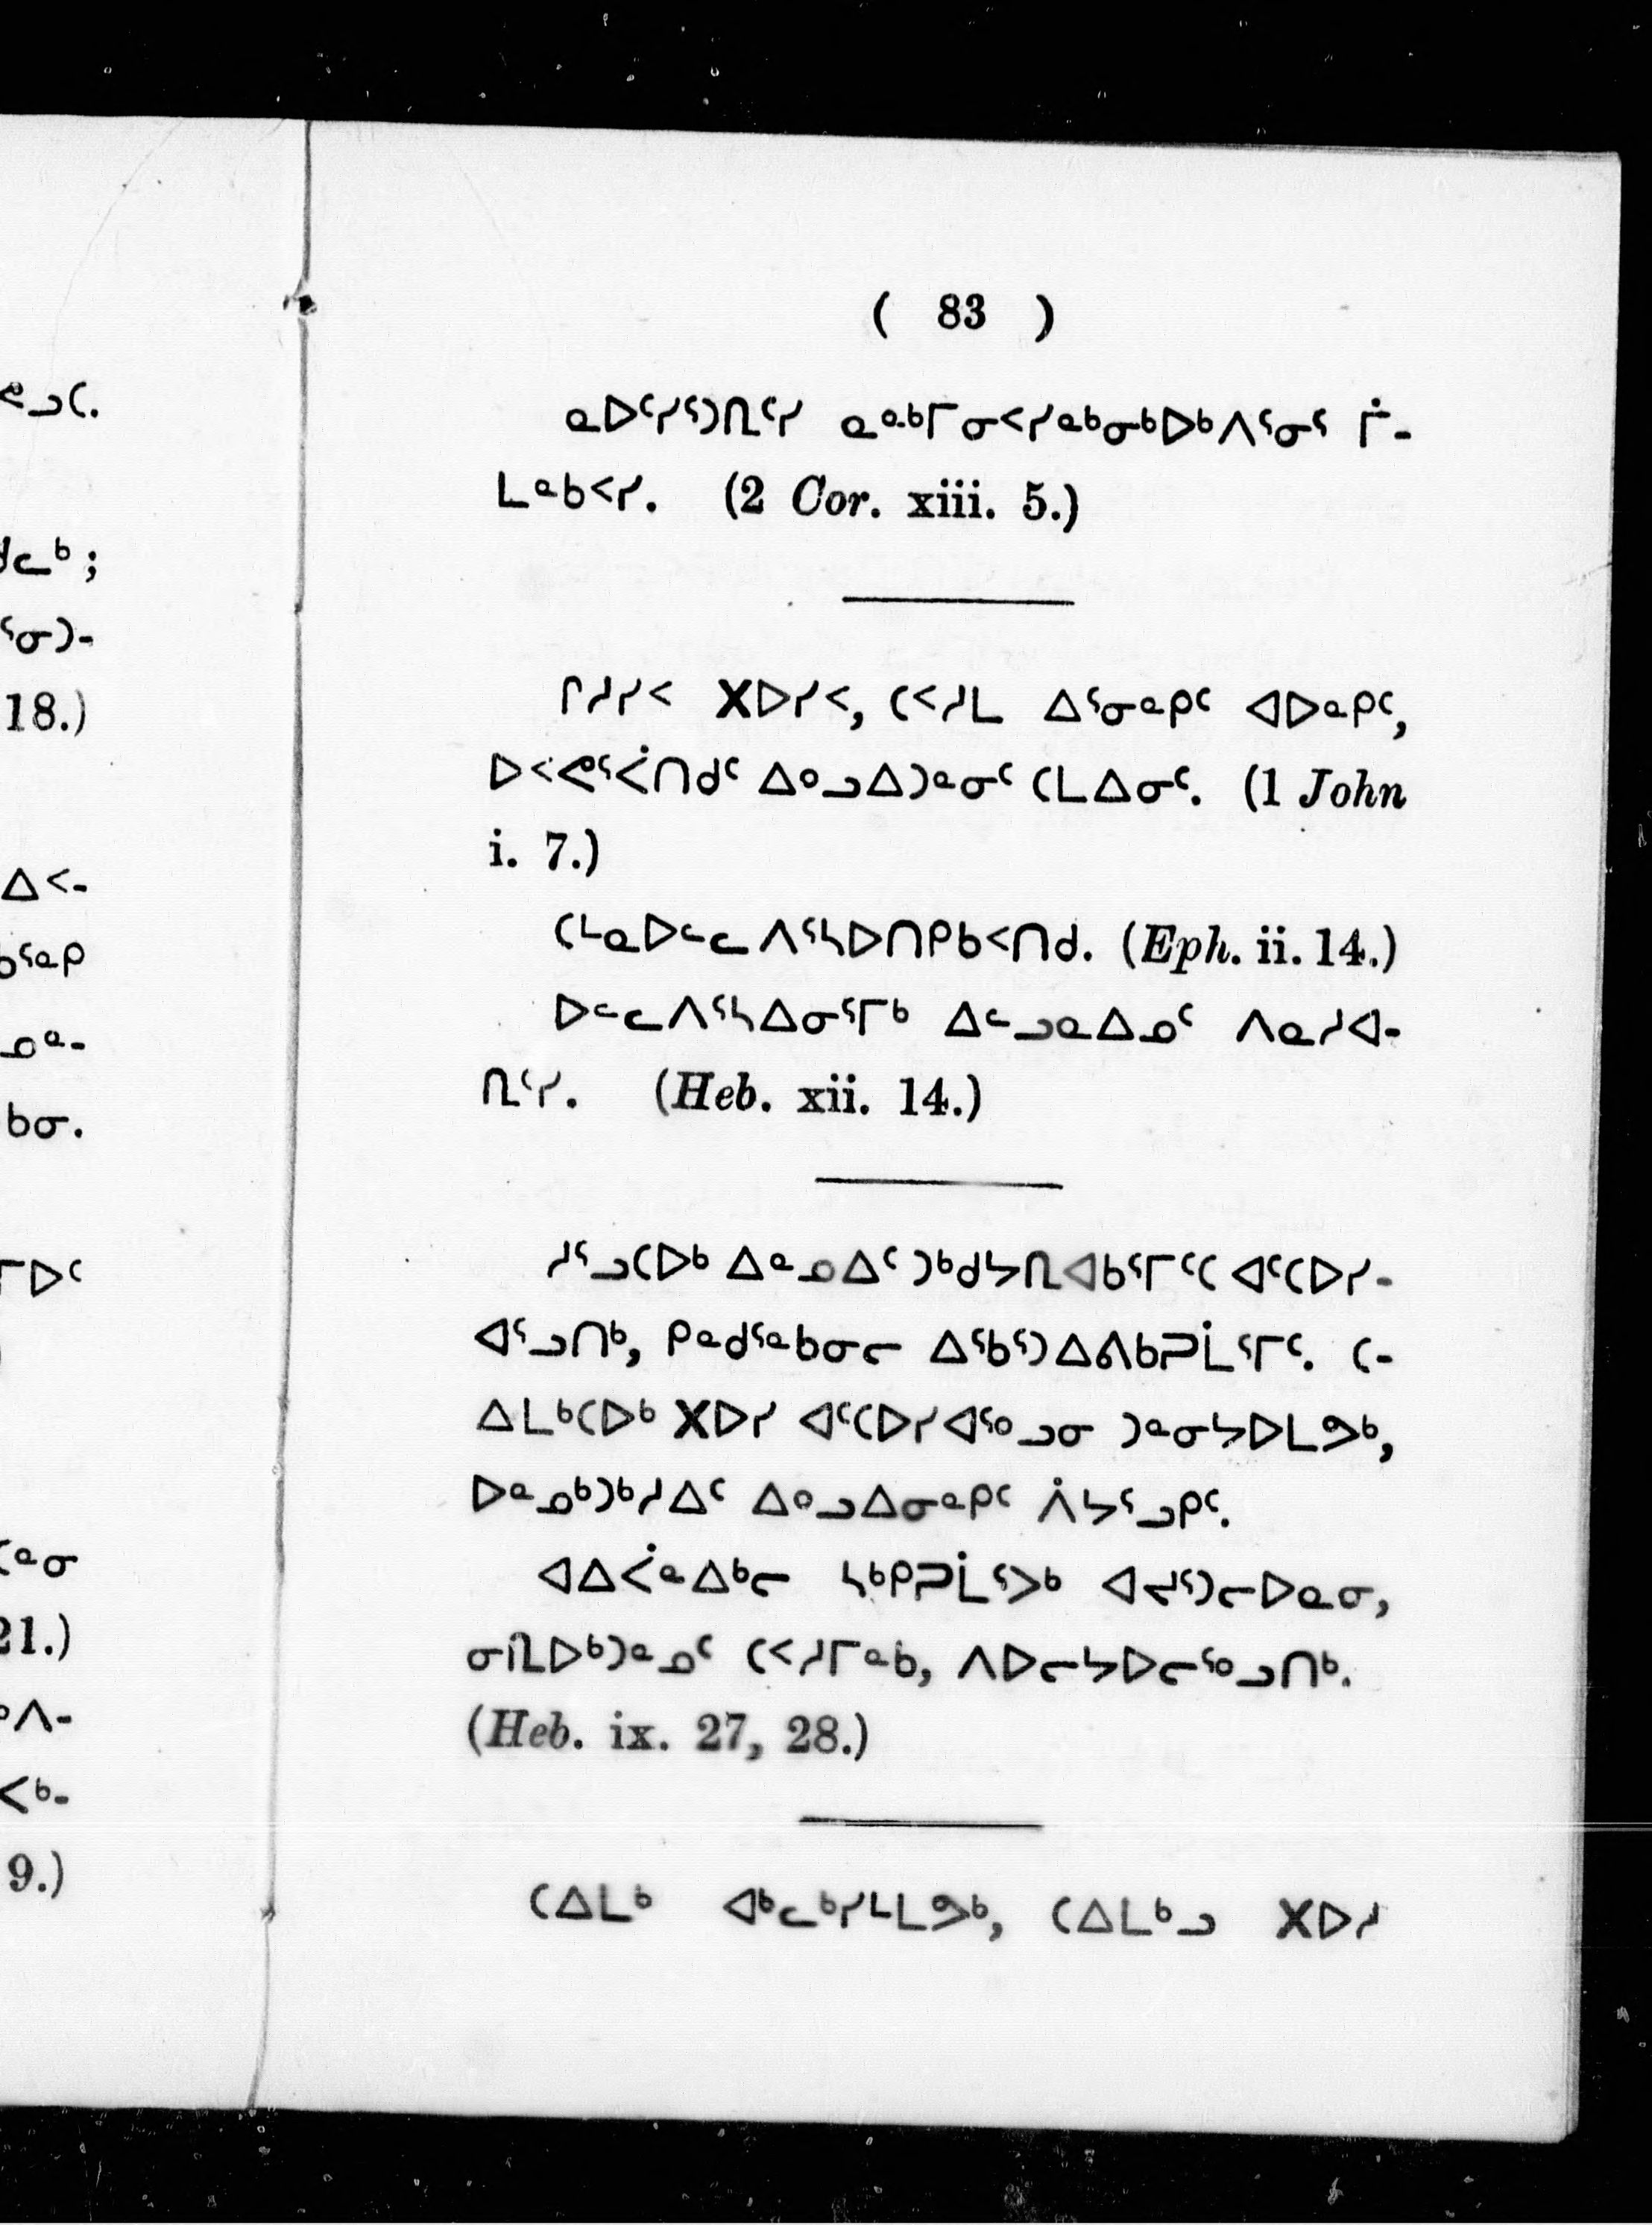 ( 83 )
ᓇᐅᑦᓯᕐᑐᒋᑦᓯ ᓇᓐᒃᒥᓂᑉᓯᓐᒃᓂᒃᐅᒃᐱᕐᓂᕐ ᒦ-
ᒪᓐᑲᑉᓯ.  (2 Cor. xiii. 5.)
ᒋᓱᓯᑉ ᕽᐅᓯᑉ, ᑕᑉᓱᒪ ᐃᕐᓂᓐᑭᑦ ᐊᐅᓐᑭᑦ,
ᐅᑉᕙᕐᐹᑎᑯᑦ ᐃᓪᓗᐃᑐᓐᓂᑦ ᑕᒪᐃᓂᑦ. (1 John
i. 7.)
ᑕᒻᓇᐅᓪᓚᐱᕐᓴᐅᑎᑭᑲᑉᑎᑯ. (Eph. ii. 14.)
ᐅᓪᓚᐱᕐᓴᐃᓂᕐᒥᒃ ᐃᓪᓗᓇᐃᓄᑦ ᐱᓇᓱᐊ-
ᒋᑦᓯ.  (Heb. xii. 14.)
ᓱᕐᓗᑕᐅᒃ ᐃᓐᓄᐃᑦ ᑐᒃᑯᔭᒋᐊᑲᕐᒥᑦᑕ ᐊᑦᑕᐅᓯ-
ᐊᕐᓗᑎᒃ, ᑭᓐᑯᕐᓐᑲᓂᓕ ᐃᕐᑲᕐᑐᐃᕕᑲᑐᒫᕐᒥᑦ. ᑕ-
ᐃᒪᒃᑕᐅᒃ ᕽᐅᓯ ᐊᑦᑕᐅᓯᐊᕐᓪᓗᓂ ᑐᓐᓂᔭᐅᒪᕗᒃ,
ᐅᓐᓄᒃᑐᒃᓱᐃᑦ ᐃᓪᓗᐃᓂᓐᑭᑦ ᐲᔭᕐᓗᑭᑦ.
ᐊᐃᐹᓐᐃᒃᓕ ᓴᒃᑭᑐᒫᕐᐳᒃ ᐊᔪᕐᑐᓕᐅᓇᓂ,
ᓂᕆᐅᒃᑐᓐᓄᑦ ᑕᑉᓱᒥᓐᑲ, ᐱᐅᓕᔭᐅᓕᕐᓪᓗᑎᒃ.
(Heb. ix. 27, 28.)
ᑕᐃᒪᒃ ᐊᒃᓚᒃᓯᒻᒪᕗᒃ, ᑕᐃᒪᒃᓗ ᕽᐅᓱ